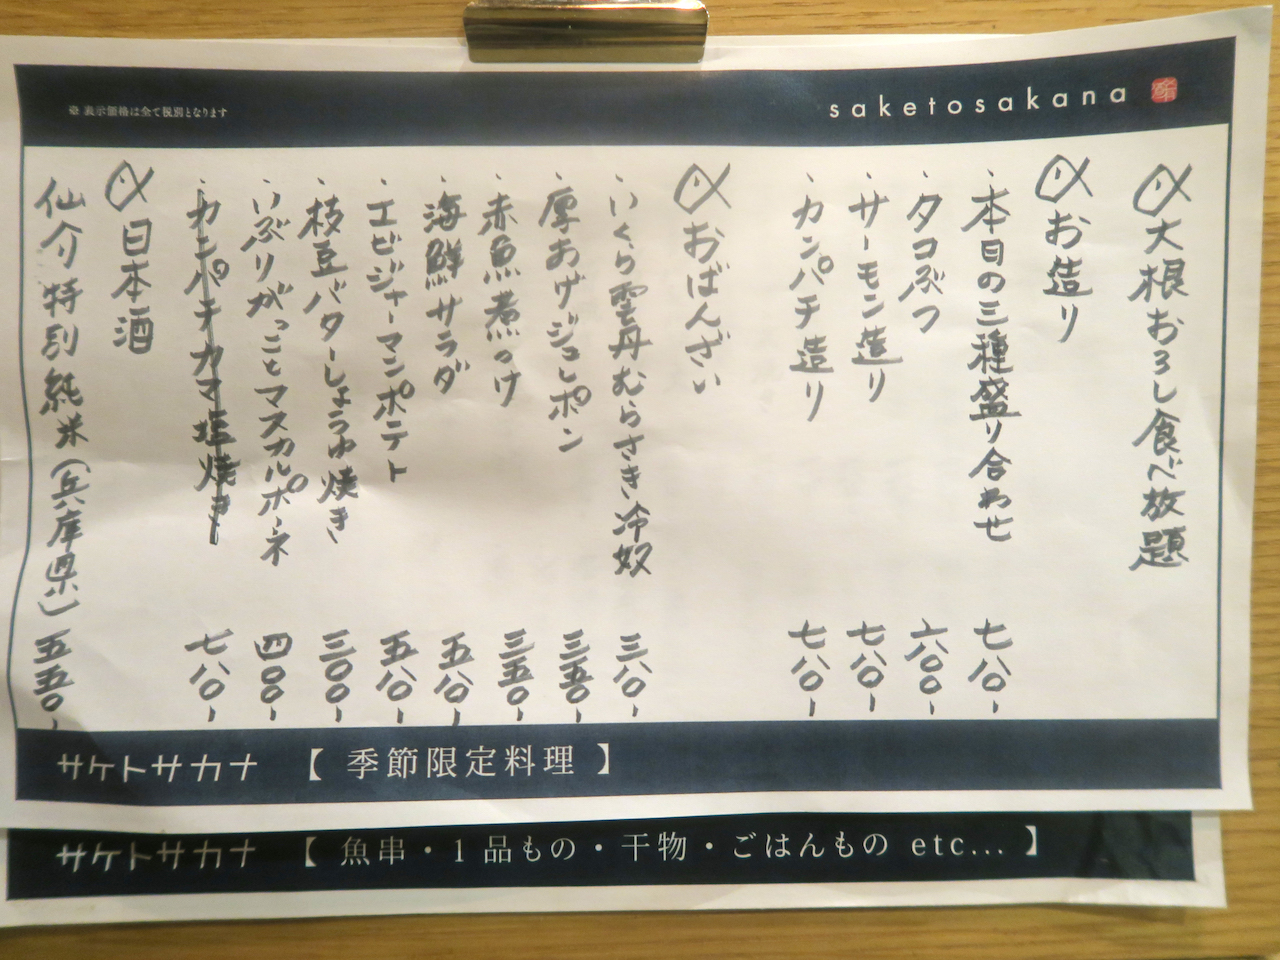 ※ 表示価格は全て税別となります
saketosakana
大根おろし食べ放題
お造り
・本日の三種盛り合わせ 七八〇-
・タコぶつ 六〇〇-
・サーモン造り 七八〇-
・カンパチ造り 七八〇-
おばんざい
・いくら雲丹むらさき冷奴 三八〇-
・厚あげジュレポン 三五〇-
・赤魚煮つけ 三五〇-
・海鮮サラダ 五八〇-
・エビジャーマンポテト 五八〇-
・枝豆バターしょうゆ焼き 三〇〇-
・いぶりがっことマスカルポーネ 四〇〇-
・カンパチカマ塩焼き 七八〇-
日本酒
仙介特別純米(兵庫県) 五五〇-
サケトサカナ 【 季節限定料理 】
サケトサカナ 【 魚串・1品もの・干物・ごはんもの etc... 】